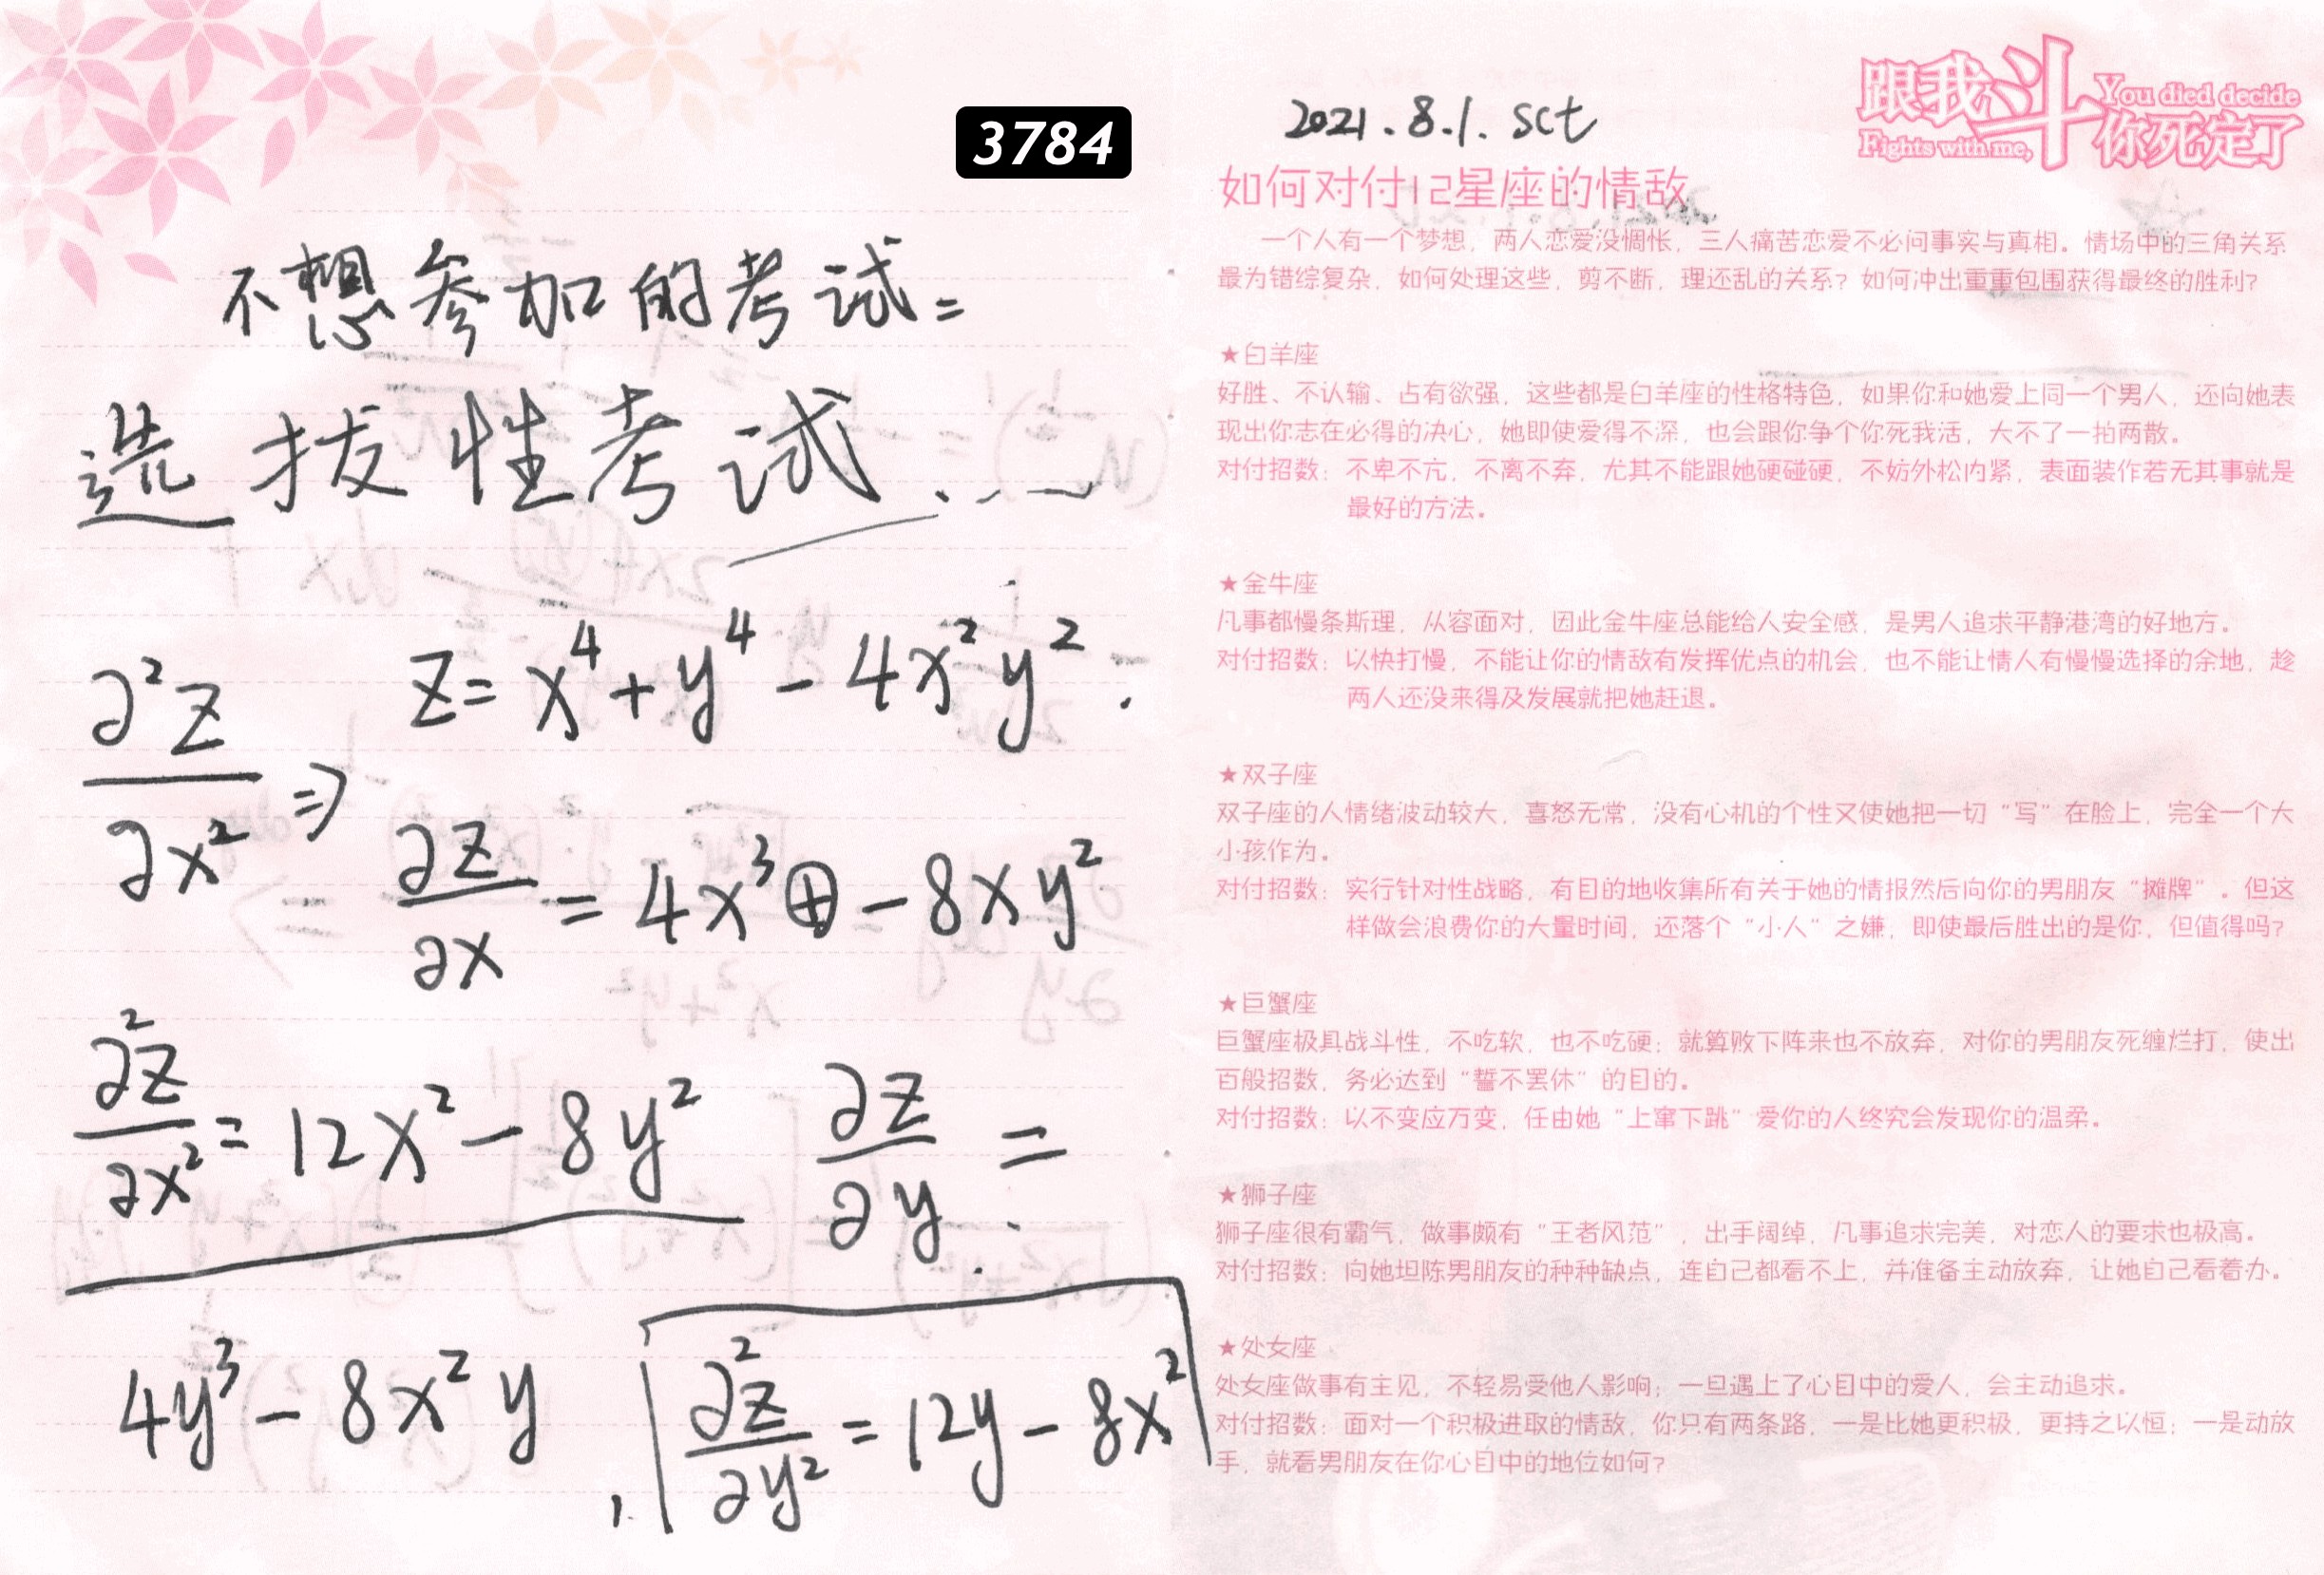 3784
不想参加的考试=
选拔性考试......
z=x⁴+y⁴-4x²y².
∂²z/∂x² ⇒
∂z/∂x=4x³⊕-8xy²
∂²z/∂x²=12x²-8y² ∂z/∂y=
4y³-8x²y, ∂²z/∂y²=12y-8x²
2021.8.1. sct
跟我斗
Fights with me,
You died decide
你死定了
如何对付12星座的情敌
一个人有一个梦想，两人恋爱没惆怅，三人痛苦恋爱不必问事实与真相。情场中的三角关系
最为错综复杂，如何处理这些，剪不断，理还乱的关系？如何冲出重重包围获得最终的胜利？
★白羊座
好胜、不认输、占有欲强，这些都是白羊座的性格特色，如果你和她爱上同一个男人，还向她表
现出你志在必得的决心，她即使爱得不深，也会跟你争个你死我活，大不了一拍两散。
对付招数：不卑不亢，不离不弃，尤其不能跟她硬碰硬，不妨外松内紧，表面装作若无其事就是
最好的方法。
★金牛座
凡事都慢条斯理，从容面对，因此金牛座总能给人安全感，是男人追求平静港湾的好地方。
对付招数：以快打慢，不能让你的情敌有发挥优点的机会，也不能让情人有慢慢选择的余地，趁
两人还没来得及发展就把她赶退。
★双子座
双子座的人情绪波动较大，喜怒无常，没有心机的个性又使她把一切“写”在脸上，完全一个大
小孩作为。
对付招数：实行针对性战略，有目的地收集所有关于她的情报然后向你的男朋友“摊牌”。但这
样做会浪费你的大量时间，还落个“小人”之嫌，即使最后胜出的是你，但值得吗？
★巨蟹座
巨蟹座极具战斗性，不吃软，也不吃硬；就算败下阵来也不放弃，对你的男朋友死缠烂打，使出
百般招数，务必达到“誓不罢休”的目的。
对付招数：以不变应万变，任由她“上窜下跳”爱你的人终究会发现你的温柔。
★狮子座
狮子座很有霸气，做事颇有“王者风范”，出手阔绰，凡事追求完美，对恋人的要求也极高。
对付招数：向她坦陈男朋友的种种缺点，连自己都看不上，并准备主动放弃，让她自己看着办。
★处女座
处女座做事有主见，不轻易受他人影响；一旦遇上了心目中的爱人，会主动追求。
对付招数：面对一个积极进取的情敌，你只有两条路，一是比她更积极，更持之以恒；一是动放
手，就看男朋友在你心目中的地位如何？